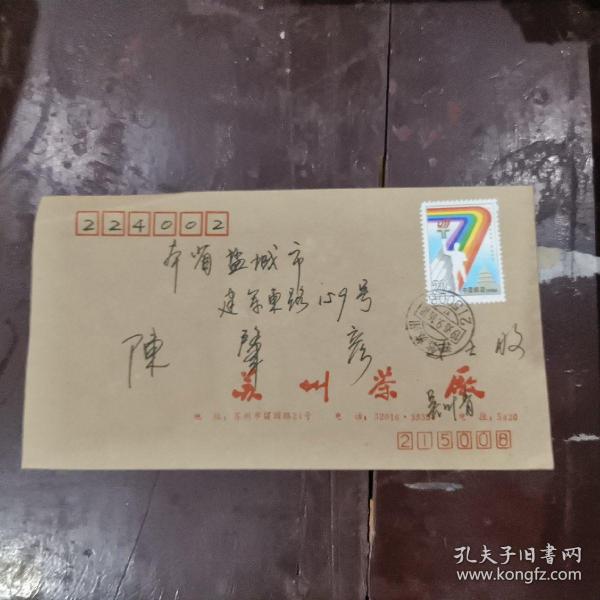 224002
本省盐城市
建军東路159号
陳肇彦 女士收
苏州茶厂
吴
地址：苏州市 路24号 电话：32016·
215008
中国邮政
孔夫子旧书网
www.kongfz.com